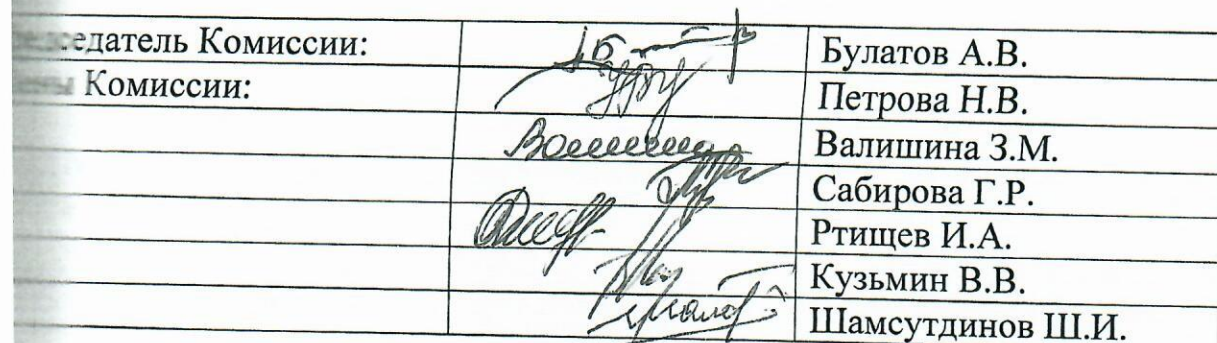 седатель Комиссии: Булатов А.В.
Комиссии: Петрова Н.В.
Валишина З.М.
Сабирова Г.Р.
Ртищев И.А.
Кузьмин В.В.
Шамсутдинов Ш.И.